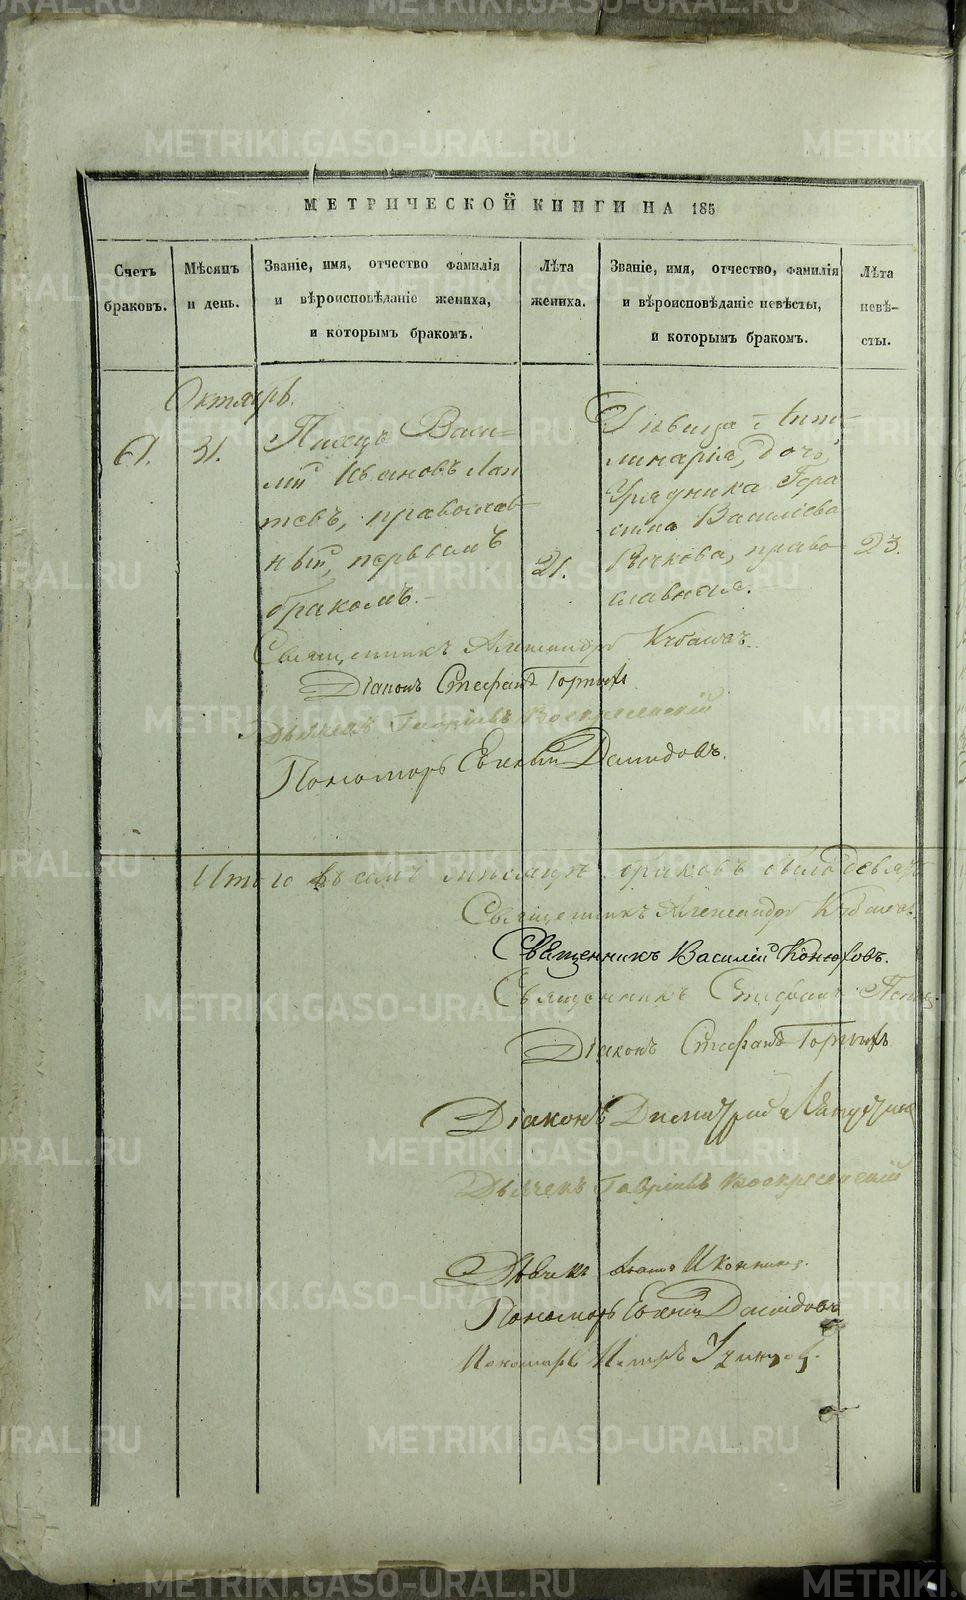 METRIKI.GASO-URAL.RU
МЕТРИЧЕСКОЙ КНИГИ НА 185
Счетъ браковъ.
Мѣсяцъ и день.
Званіе, имя, отчество фамилія
и вѣроисповѣданіе жениха,
и которымъ бракомъ.
Лѣта жениха.
Званіе, имя, отчество, фамилія
и вѣроисповѣданіе невѣсты,
и которымъ бракомъ.
Лѣта невѣ-
сты.
Октябрь.
61. 31.
Писецъ Васи-
лій Ивановъ Лап
тевъ, православ
ный, первымъ
бракомъ.
21.
Дѣвица Апол-
линарія, дочь
Урядника Гера
сима Васильева
Бычкова, право
славная.
23.
Священникъ Александръ
Діаконъ Стефанъ Горныхъ
Дьячекъ Гавріилъ Воскресенскій
Пономарь Евгеній Демидовъ.
Итого въ семъ мѣсяцѣ браковъ было девять
Священникъ Александръ
Священникъ Василій Конюховъ.
Священникъ Стефанъ Попов
Діаконъ Стефанъ Горныхъ
Діаконъ Димитрій
Дьячекъ Гавріилъ Воскресенскій
Дьячекъ
Пономарь Евгеній Демидовъ
Пономарь Петръ